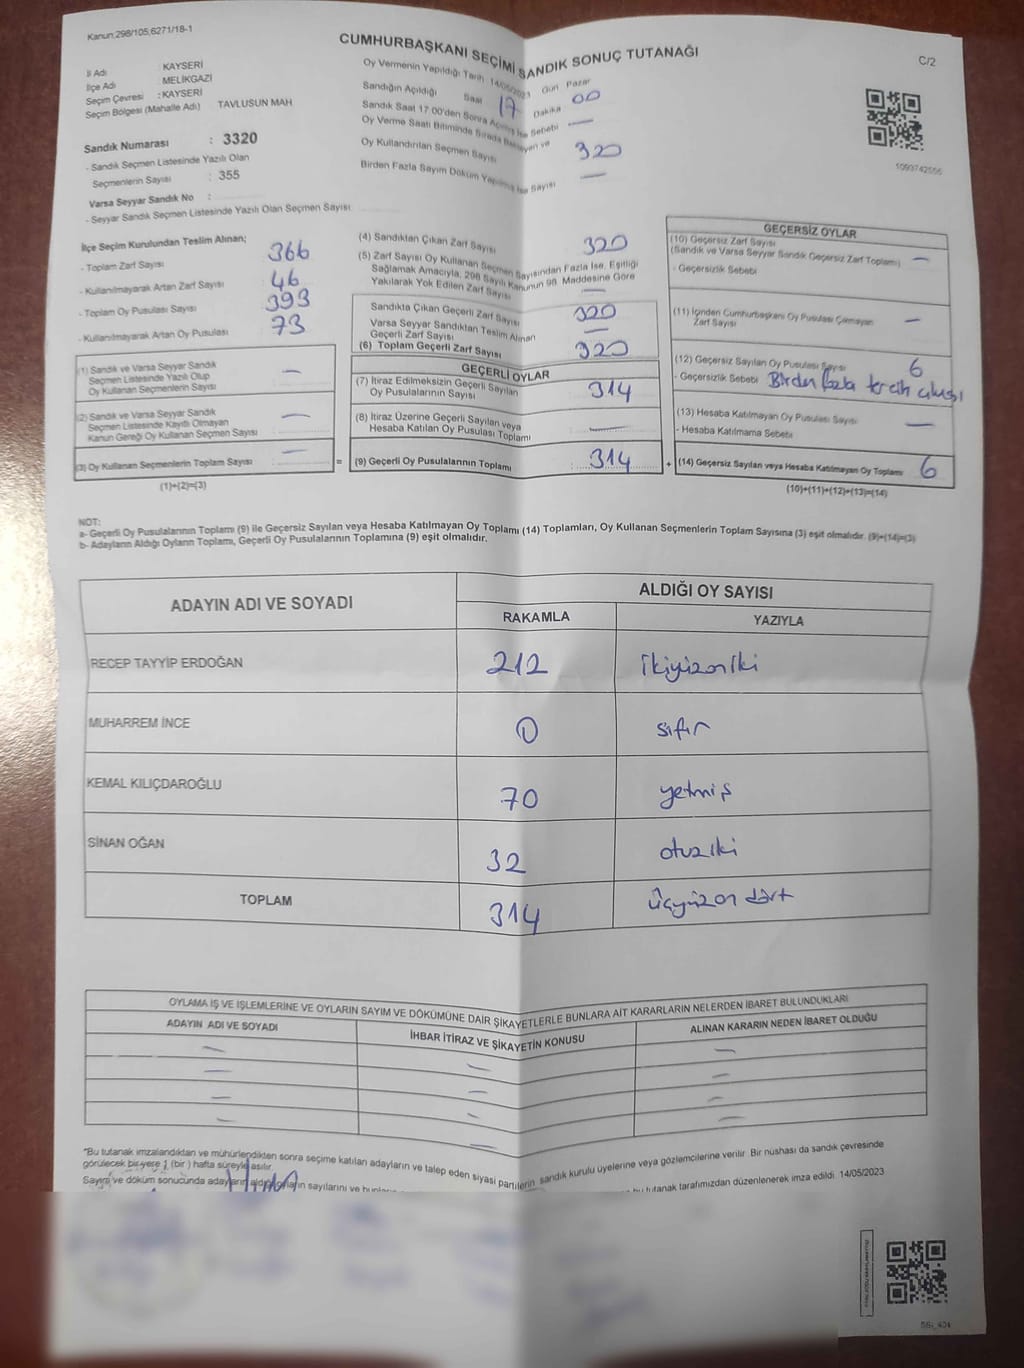 Kanun:298/105;6271/18-1
CUMHURBAŞKANI SEÇİMİ SANDIK SONUÇ TUTANAĞI
C/2
İl Adı : KAYSERİ
İlçe Adı : MELİKGAZİ
Seçim Çevresi : KAYSERİ
Seçim Bölgesi (Mahalle Adı) TAVLUSUN MAH
Sandık Numarası : 3320
- Sandık Seçmen Listesinde Yazılı Olan
Seçmenlerin Sayısı : 355
Varsa Seyyar Sandık No :
- Seyyar Sandık Seçmen Listesinde Yazılı Olan Seçmen Sayısı
Oy Vermenin Yapıldığı Tarih 14/05/2023 Gün Pazar
Sandığın Açıldığı Saat 17 Dakika 00
Sandık Saat 17:00'den Sonra Açılmış İse Sebebi —
Oy Verme Saati Bitiminde Sırada Bekleyen ve
Oy Kullandırılan Seçmen Sayısı 320
Birden Fazla Sayım Döküm Yapılmış İse Sayısı —
1093742556
İlçe Seçim Kurulundan Teslim Alınan;
- Toplam Zarf Sayısı : 366
- Kullanılmayarak Artan Zarf Sayısı : 46
- Toplam Oy Pusulası Sayısı : 393
- Kullanılmayarak Artan Oy Pusulası : 73
(1) Sandık ve Varsa Seyyar Sandık
Seçmen Listesinde Yazılı Olup
Oy Kullanan Seçmenlerin Sayısı : —
(2) Sandık ve Varsa Seyyar Sandık
Seçmen Listesinde Kayıtlı Olmayan
Kanun Gereği Oy Kullanan Seçmen Sayısı : —
(3) Oy Kullanan Seçmenlerin Toplam Sayısı : —
(1)+(2)=(3)
(4) Sandıktan Çıkan Zarf Sayısı 320
(5) Zarf Sayısı Oy Kullanan Seçmen Sayısından Fazla İse, Eşitliği
Sağlamak Amacıyla, 298 Sayılı Kanunun 98. Maddesine Göre
Yakılarak Yok Edilen Zarf Sayısı —
Sandıkta Çıkan Geçerli Zarf Sayısı 320
Varsa Seyyar Sandıktan Teslim Alınan
Geçerli Zarf Sayısı —
(6) Toplam Geçerli Zarf Sayısı 320
GEÇERLİ OYLAR
(7) İtiraz Edilmeksizin Geçerli Sayılan
Oy Pusulalarının Sayısı 314
(8) İtiraz Üzerine Geçerli Sayılan veya
Hesaba Katılan Oy Pusulası Toplamı : —
= (9) Geçerli Oy Pusulalarının Toplamı : 314 +
GEÇERSİZ OYLAR
(10) Geçersiz Zarf Sayısı
(Sandık ve Varsa Seyyar Sandık Geçersiz Zarf Toplamı) —
- Geçersizlik Sebebi
(11) İçinden Cumhurbaşkanı Oy Pusulası Çıkmayan
Zarf Sayısı —
(12) Geçersiz Sayılan Oy Pusulası Sayısı 6
- Geçersizlik Sebebi Birden fazla tercih oluşu
(13) Hesaba Katılmayan Oy Pusula Sayısı —
- Hesaba Katılmama Sebebi
(14) Geçersiz Sayılan veya Hesaba Katılmayan Oy Toplamı 6
(10)+(11)+(12)+(13)=(14)
NOT:
a- Geçerli Oy Pusulalarının Toplamı (9) ile Geçersiz Sayılan veya Hesaba Katılmayan Oy Toplamı (14) Toplamları, Oy Kullanan Seçmenlerin Toplam Sayısına (3) eşit olmalıdır. (9)+(14)=(3)
b- Adayların Aldığı Oyların Toplamı, Geçerli Oy Pusulalarının Toplamına (9) eşit olmalıdır.
ADAYIN ADI VE SOYADI
ALDIĞI OY SAYISI
RAKAMLA YAZIYLA
RECEP TAYYİP ERDOĞAN 212 ikiyüzoniki
MUHARREM İNCE 0 sıfır
KEMAL KILIÇDAROĞLU 70 yetmiş
SİNAN OĞAN 32 otuziki
TOPLAM 314 üçyüzon dört
OYLAMA İŞ VE İŞLEMLERİNE VE OYLARIN SAYIM VE DÖKÜMÜNE DAİR ŞİKAYETLERLE BUNLARA AİT KARARLARIN NELERDEN İBARET BULUNDUKLARI
ADAYIN ADI VE SOYADI İHBAR İTİRAZ VE ŞİKAYETİN KONUSU ALINAN KARARIN NEDEN İBARET OLDUĞU
— — —
— — —
— — —
— — —
*Bu tutanak imzalandıktan ve mühürlendikten sonra seçime katılan adayların ve talep eden siyasi partilerin sandık kurulu üyelerine veya gözlemcilerine verilir. Bir nüshası da sandık çevresinde
görülecek bir yere 1 (bir) hafta süreyle asılır.
Sayım ve döküm sonucunda adayların aldığı oyların sayılarını ve bunların bu tutanak tarafımızdan düzenlenerek imza edildi. 14/05/2023